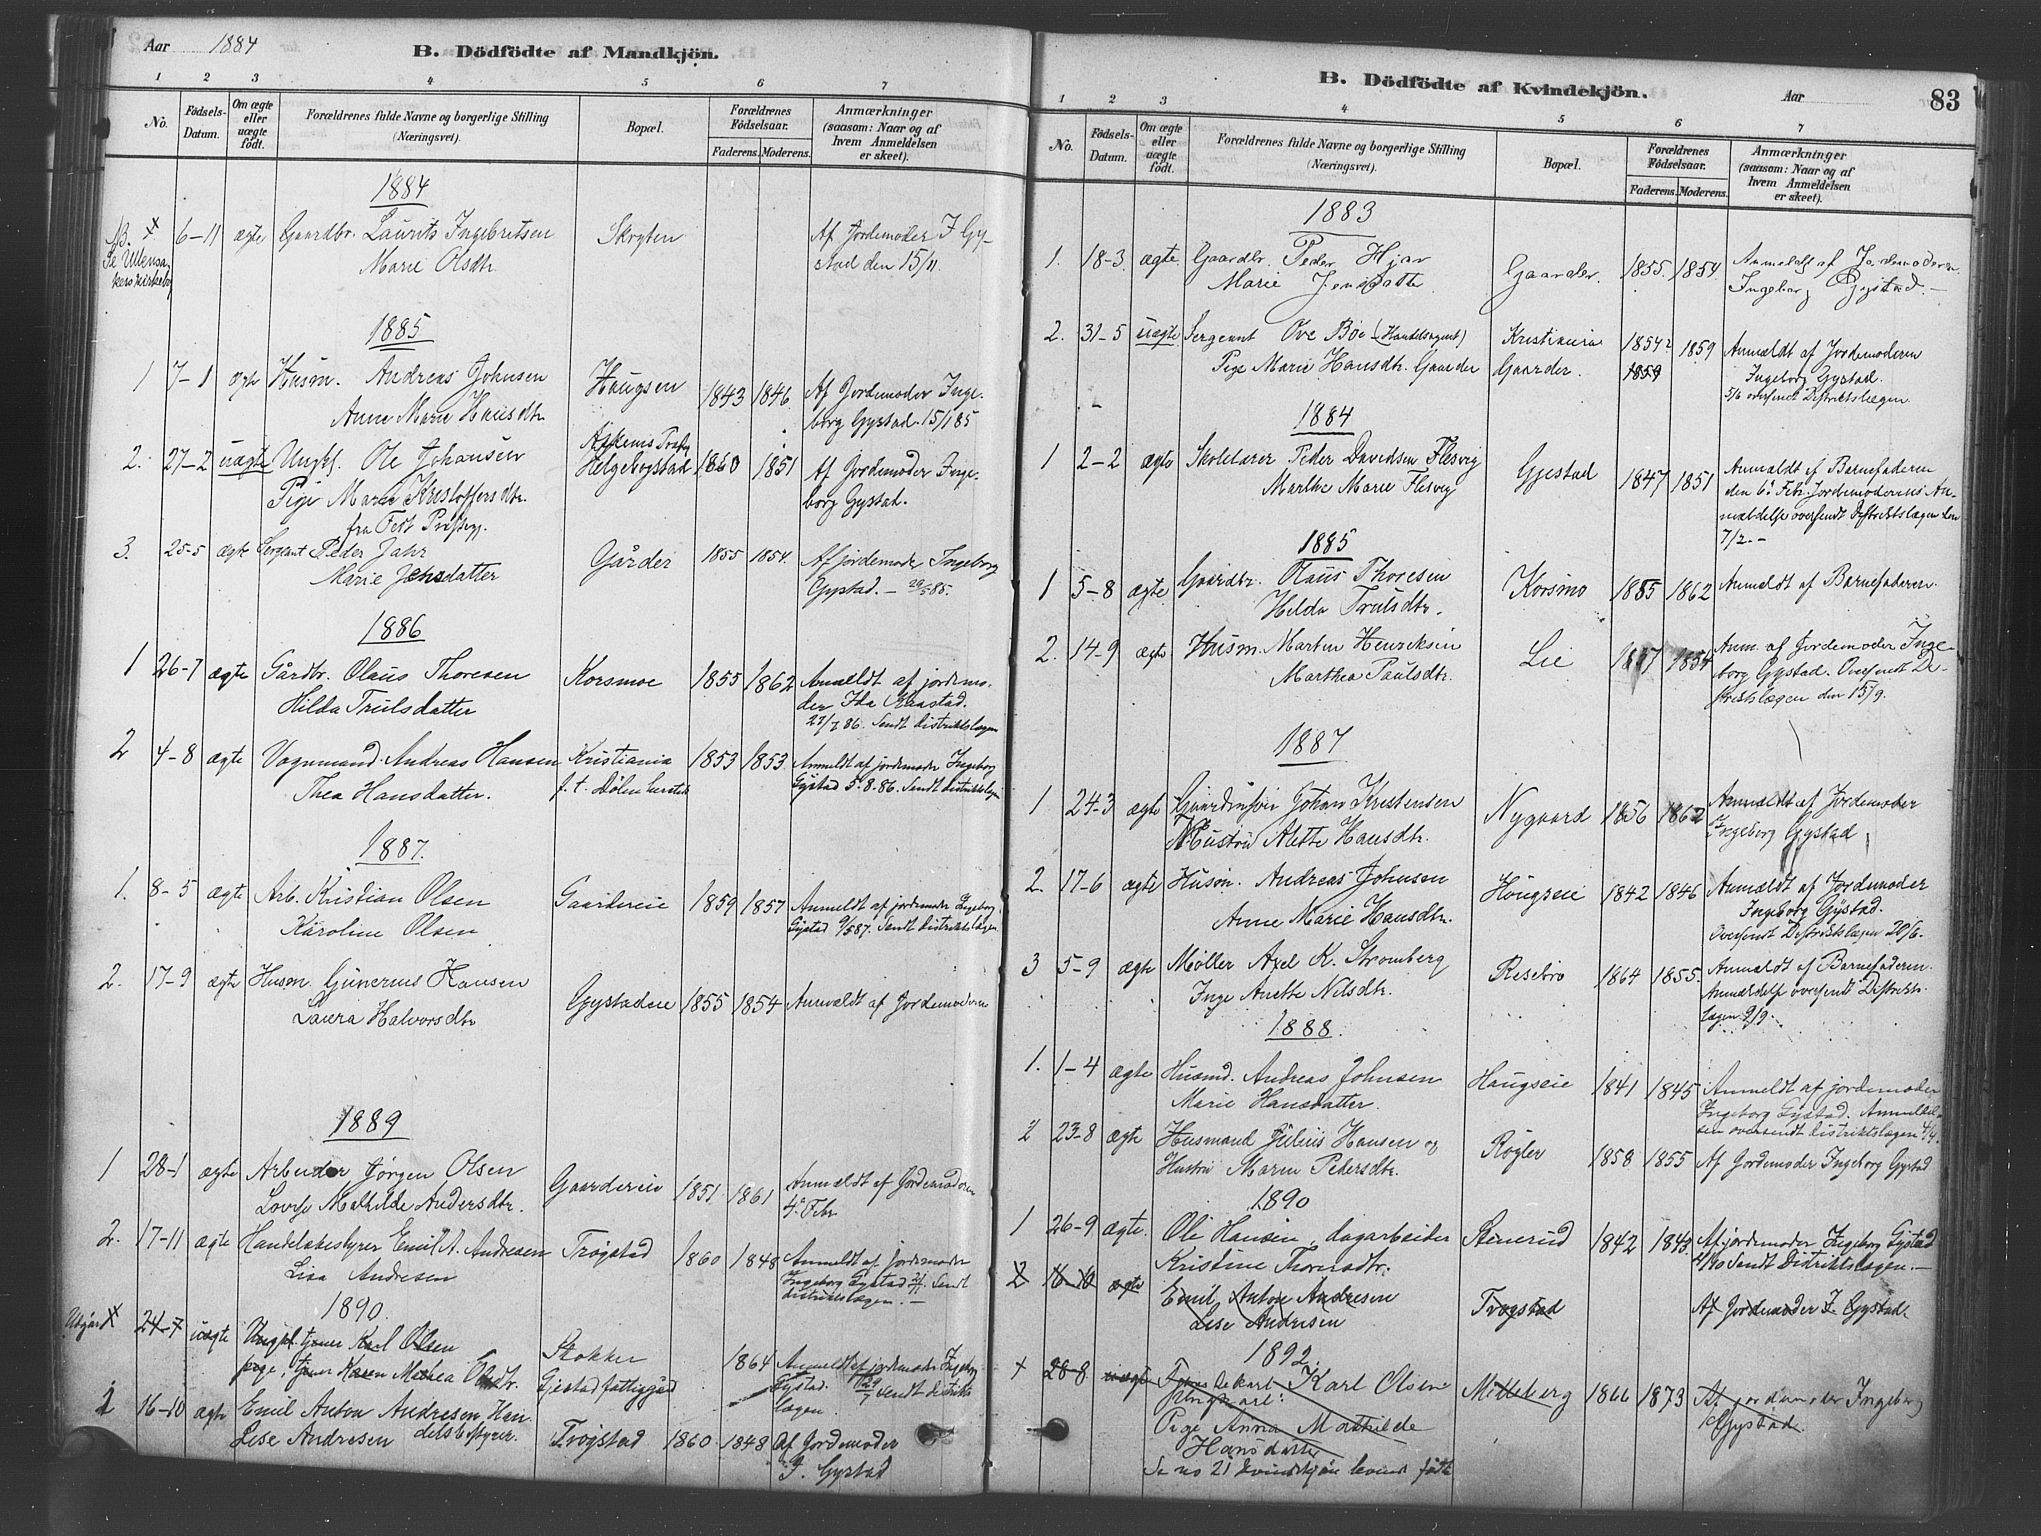 Aar 1884
B. Dödfödte af Mandkjön.
1 2 3 4 5 6 7
No.
Födsels-Datum.
Om ægte eller uægte födt.
Forældrenes fulde Navne og borgerlige Stilling (Næringsvei).
Bopæl.
Forældrenes Födselsaar.
Faderens. Moderens.
Anmærkninger (saasom: Naar og af hvem Anmeldelsen er skeet).
1884
6-11 ægte Gaardbr. Laurits Ingebretsen Af Jordemoder I Gy-
Marie Olsdtr. stad den 15/11.
1885
1 7-1 ægte Husm. Andreas Johnsen Haugsen 1843 1846 Af Jordemoder Inge-
Anne Marie Hansdtr. borg Gystad. 15/1 85
2. 27-2 uægte Ungk. Ole Johansen Helgebogstad 1860 1851 Af Jordemoder Inge-
Pige Maren Kristoffersdtr. borg Gystad.
fra Fet
3. 25-5 ægte Sergeant Peder Jahr Gårder 1855 1854. Af jordemoder Ingeborg
Marie Jensdatter Gystad. - 29/5 85.
1886
1 26-7 ægte Gårdbr. Olaus Thoresen Korsmoe 1855 1862 Anmeldt af jordemo-
Hilda Trulsdatter der Ida Raastad.
27/7 86. Sendt distriktslægen
2 4-8 ægte Vognmand Andreas Hansen Kristiania 1853 1853. Anmeldt af jordemoder Ingeborg
Thea Hansdatter. f. t. Dølen Gystad 5-8-86. Sendt distriktslægen
1887.
1. 8-5 ægte Arb. Kristian Olsen Gaardereie 1859 1857 Anmeldt af jordemoder Ingeborg
Karoline Olsen Gystad 9/5 87. Sendt distriktslægen
2. 17-9 ægte Husm. Gunerius Hansen Gystadeie 1855 1854 Anmeldt af Jordemoderen
Laura Halvorsdtr
1889
1 28-1 ægte Arbeider Jørgen Olsen Gaardereie 1851 1861 Anmeldt af Jordemoderen
Lovise Mathilde Andersdtr. 4. Febr.
2. 17-11 ægte Handelsbestyrer Emil A. Andresen Trøgstad 1860 1848 Anmeldt af jordemoder
Lisa Andresen Ingeborg Gystad Sendt
distriktslægen. -
1890.
Udgår 24-7 uægte Ungkl. tjener Karl Olsen Stokker 1864 Anmeldt af jordemoder Ingeborg
pige, tjener Karen Mathea Olsdtr. Gjestad fattiggård Gystad. 24/7 Sendt distrikts
lægen
1 16-10 ægte Emil Anton Andresen Han- Trøgstad 1860 1848 Af Jordemoder
Lise Andresen delsbestyrer. I. Gystad
B. Dödfödte af Kvindekjön. Aar 83
1 2 3 4 5 6 7
No.
Födsels-Datum.
Om ægte eller uægte födt.
Forældrenes fulde Navne og borgerlige Stilling (Næringsvei).
Bopæl.
Forældrenes Födselsaar.
Faderens. Moderens.
Anmærkninger (saasom: Naar og af hvem Anmeldelsen er skeet).
1883
1. 18-3. ægte. Gaardbr. Peder Gaarder. 1855. 1854. Anmeldt af Jordemoderen
Marie Jensdatter Ingeborg Gystad. -
2. 31-5 uægte Sergeant Ove Boe (Handelsagent) Kristiania 1854 1859 Anmeldt af Jordemoderen
Pige Marie Hansdtr. Gaarder Gaarder. 1859 Ingeborg Gystad.
5/6 oversendt Distriktslægen.
1884
1 2-2 ægte Skolelærer Peder Davidsen Flesvig Gjestad 1847 1851 Anmeldt af Barnefaderen
Marthe Marie Flesvig den 6. Febr. Jordemoderens An-
meldelse oversendt Distriktslægen den
7/2. -
1885
1 5-8 ægte Gaardbr. Olaus Thoresen Korsmo 1855 1862 Anmeldt af Barnefaderen.
Hilda Trulsdtr.
2. 14-9 ægte Husm. Marten Henriksen Lie 1854 Anm. af Jordemoder Inge-
Marthea Paulsdtr. borg Gystad. Oversendt Di-
striktslægen den 15/9.
1887
1 24-3 ægte Johan Kristensen Nygaard 1856 1862 Anmældt af Jordemoder
Hustru Alette Hansdtr. Ingeborg Gystad
2. 17-6 ægte Husm. Andreas Johnsen Hougseie 1842 1846 Anmældt af Jordemoder
Anne Marie Hansdtr. Ingeborg Gystad.
Oversendt Distriktslægen 20/6.
3 5-9 ægte Møller Axel K. Stromberg Risebro 1864 1855. Anmeldt af Barnefaderen.
Inge Anette Nilsdtr. Anmældelse oversendt Distrikts-
lægen 9/9.
1888.
1. 1-4 ægte Husmd. Andreas Johnsen Haugseie 1841 1845 Anmeldt af jordemoder
Marie Hansdatter. Ingeborg Gystad. Anmeldel-
sen oversendt distriktslægen 4/4.
2 23-8 ægte Husmand Julius Hansen og Røgler 1858 1855 Af Jordemoder Ingeborg Gystad
Hustru Maren Pedersdtr.
1890
1 26-9 ægte. Ole Hansen, dagarbeider Stenerud 1842 1843. Af jordemoder Ingeborg Gystad
Kristine Thorsdtr. Sendt Distriktslægen. -
2 16-10 ægte Emil Anton Andresen Trøgstad Af Jordemoder I Gystad.
Lise Andresen
1892.
+ 28-8 uægte Karl Olsen Mitteberg 1866 1873 Af jordemoder Ingeborg
Pige Anna Mathilde Gystad.
Hansdatter
Se no 21 kvindekjøn levende fødte